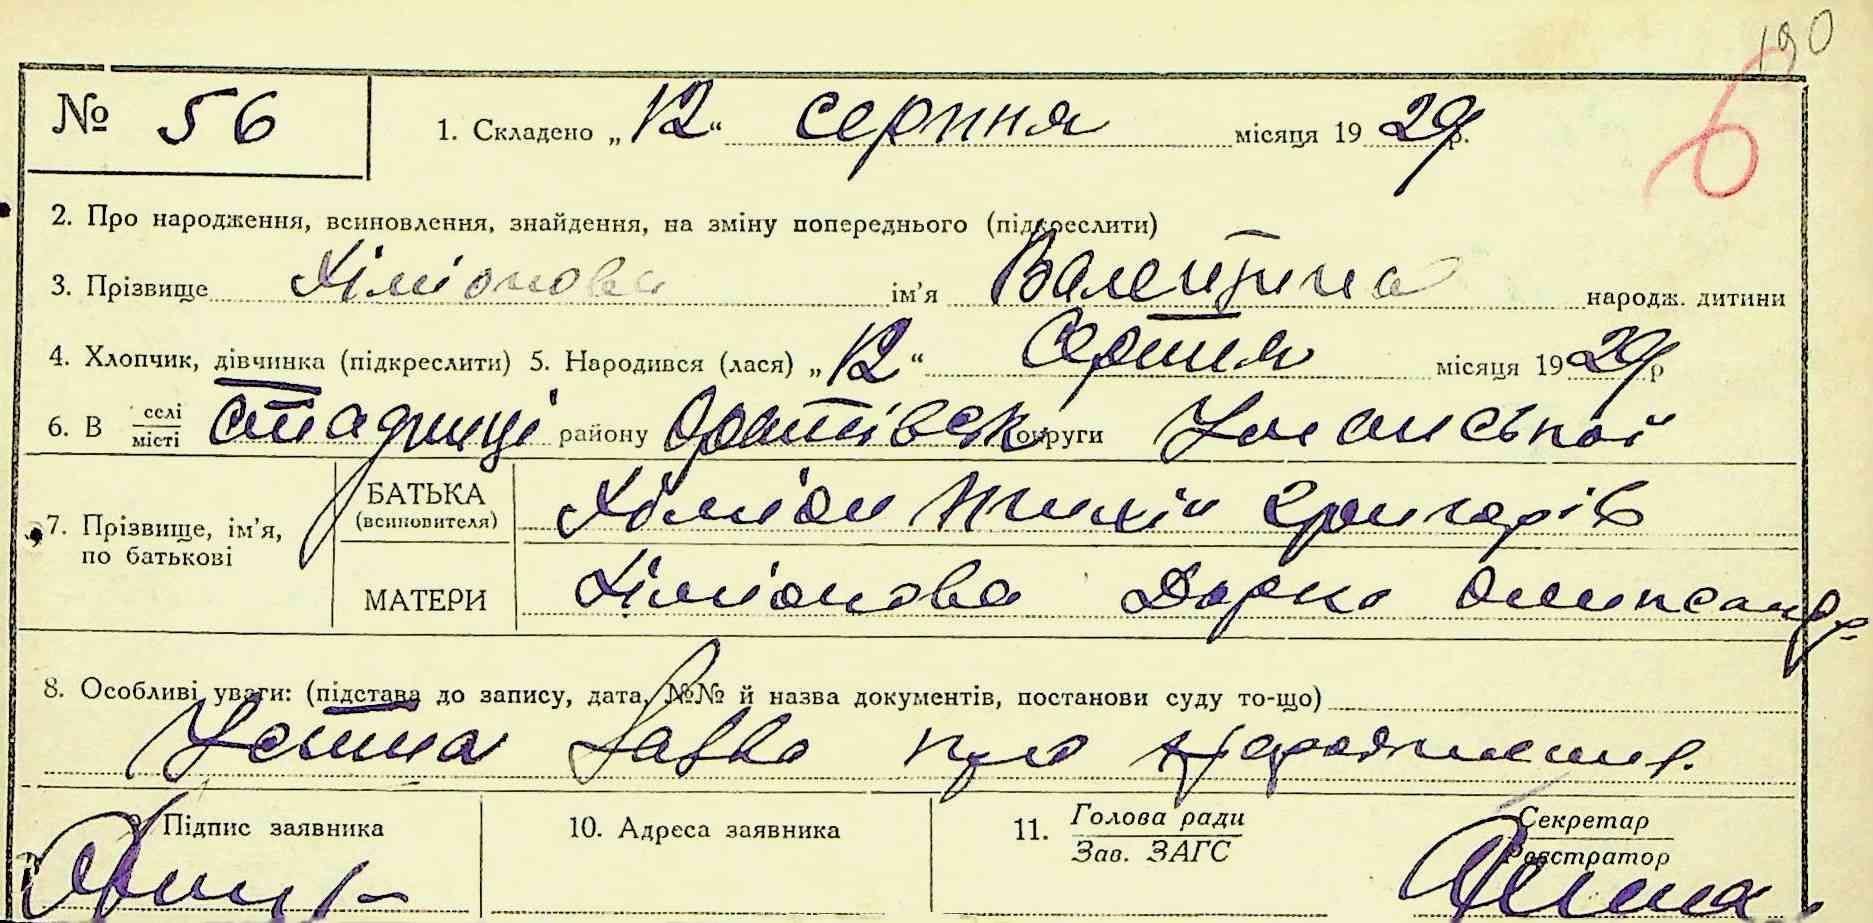 190
6
№ 56
1. Складено „12“ серпня місяця 1929 р.
2. Про народження, всиновлення, знайдення, на зміну попереднього (підкреслити)
3. Прізвище Хіміонова ім'я Валентина народж. дитини
4. Хлопчик, дівчинка (підкреслити) 5. Народився (лася) „12“ серпня місяця 1929 р
6. В селі місті Стадниці району Оратівськ округи Уманської
7. Прізвище, ім'я, по батькові
БАТЬКА (всиновителя) Хіміон Тихін Григорів
МАТЕРИ Хіміонова Дарка Олександр
8. Особливі уваги: (підстава до запису, дата, №№ й назва документів, постанови суду то-що)
Усна заява про народження.
9. Підпис заявника
10. Адреса заявника
11. Голова ради
Зав. ЗАГС
Секретар
Реєстратор